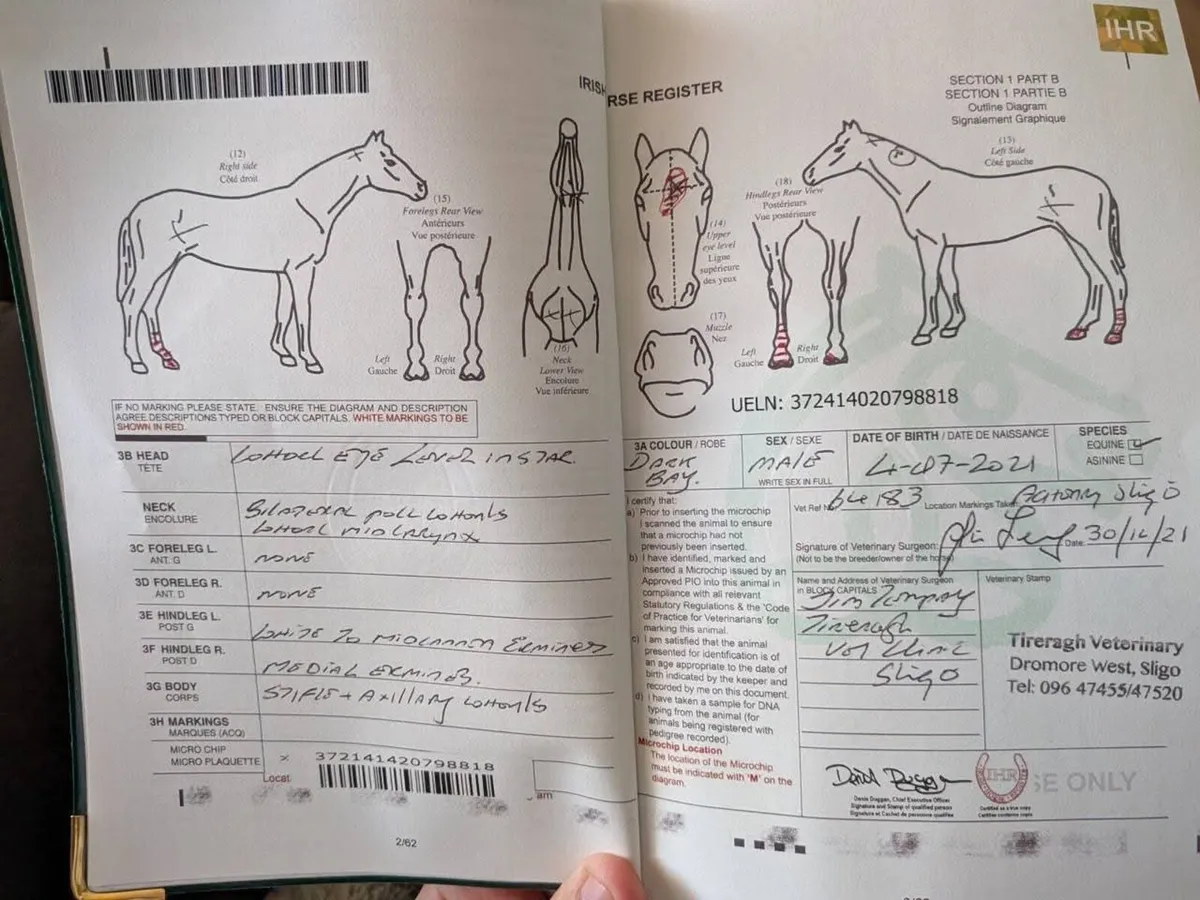 IRISH
(12)
Right side
Côté droit
(15)
Forelegs Rear View
Antérieurs
Vue postérieure
Left
Gauche
Right
Droit
(16)
Neck
Lower View
Encolure
Vue inférieure
IF NO MARKING PLEASE STATE. ENSURE THE DIAGRAM AND DESCRIPTION
AGREE DESCRIPTIONS TYPED OR BLOCK CAPITALS. WHITE MARKINGS TO BE
SHOWN IN RED.
3B HEAD
TÊTE
WHORL EYE LEVEL IN STAR.
NECK
ENCOLURE
BILATERAL POLL WHORLS
WHORL MID LARYNX
3C FORELEG L.
ANT. G
NONE
3D FORELEG R.
ANT. D
NONE
3E HINDLEG L.
POST G
WHITE TO MIDCANNON ERMINED
3F HINDLEG R.
POST D
MEDIAL ERMINED.
3G BODY
CORPS
STIFLE + AXILLARY WHORLS
3H MARKINGS
MARQUES (ACQ)
MICRO CHIP
MICRO PLAQUETTE
x 372141420798818
Locat
am
2/62
IHR
RSE REGISTER
SECTION 1 PART B
SECTION 1 PARTIE B
Outline Diagram
Signalement Graphique
(13)
Left Side
Côté gauche
(18)
Hindlegs Rear View
Postérieurs
Vue postérieure
(14)
Upper
eye level
Ligne
supérieure
des yeux
(17)
Muzzle
Nez
Left
Gauche
Right
Droit
UELN: 372414020798818
3A COLOUR / ROBE
DARK
BAY.
SEX / SEXE
MALE
WRITE SEX IN FULL
DATE OF BIRTH / DATE DE NAISSANCE
4-07-2021
SPECIES
EQUINE
ASININE
I certify that:
a) Prior to inserting the microchip
I scanned the animal to ensure
that a microchip had not
previously been inserted.
b) I have identified, marked and
inserted a Microchip issued by an
Approved PIO into this animal in
compliance with all relevant
Statutory Regulations & the 'Code
of Practice for Veterinarians' for
marking this animal.
c) I am satisfied that the animal
presented for identification is of
an age appropriate to the date of
birth indicated by the keeper and
recorded by me on this document.
d) I have taken a sample for DNA
typing from the animal (for
animals being registered with
pedigree recorded).
Microchip Location
The location of the Microchip
must be indicated with 'M' on the
diagram.
Vet Ref N
183
Location Markings Take
Sligo
Signature of Veterinary Surgeon:
(Not to be the breeder/owner of the
Date 30/12/21
Name and Address of Veterinary Surgeon
in BLOCK CAPITALS
Jim
Tireragh
Vet Clinic
Sligo
Veterinary Stamp
Tireragh Veterinary
Dromore West, Sligo
Tel: 096 47455/47520
Denis Duggan, Chief Executive Officer
Signature and Stamp of qualified person
Signature et Cachet de personne qualifée
IHR
Certified as a true copy
SE ONLY